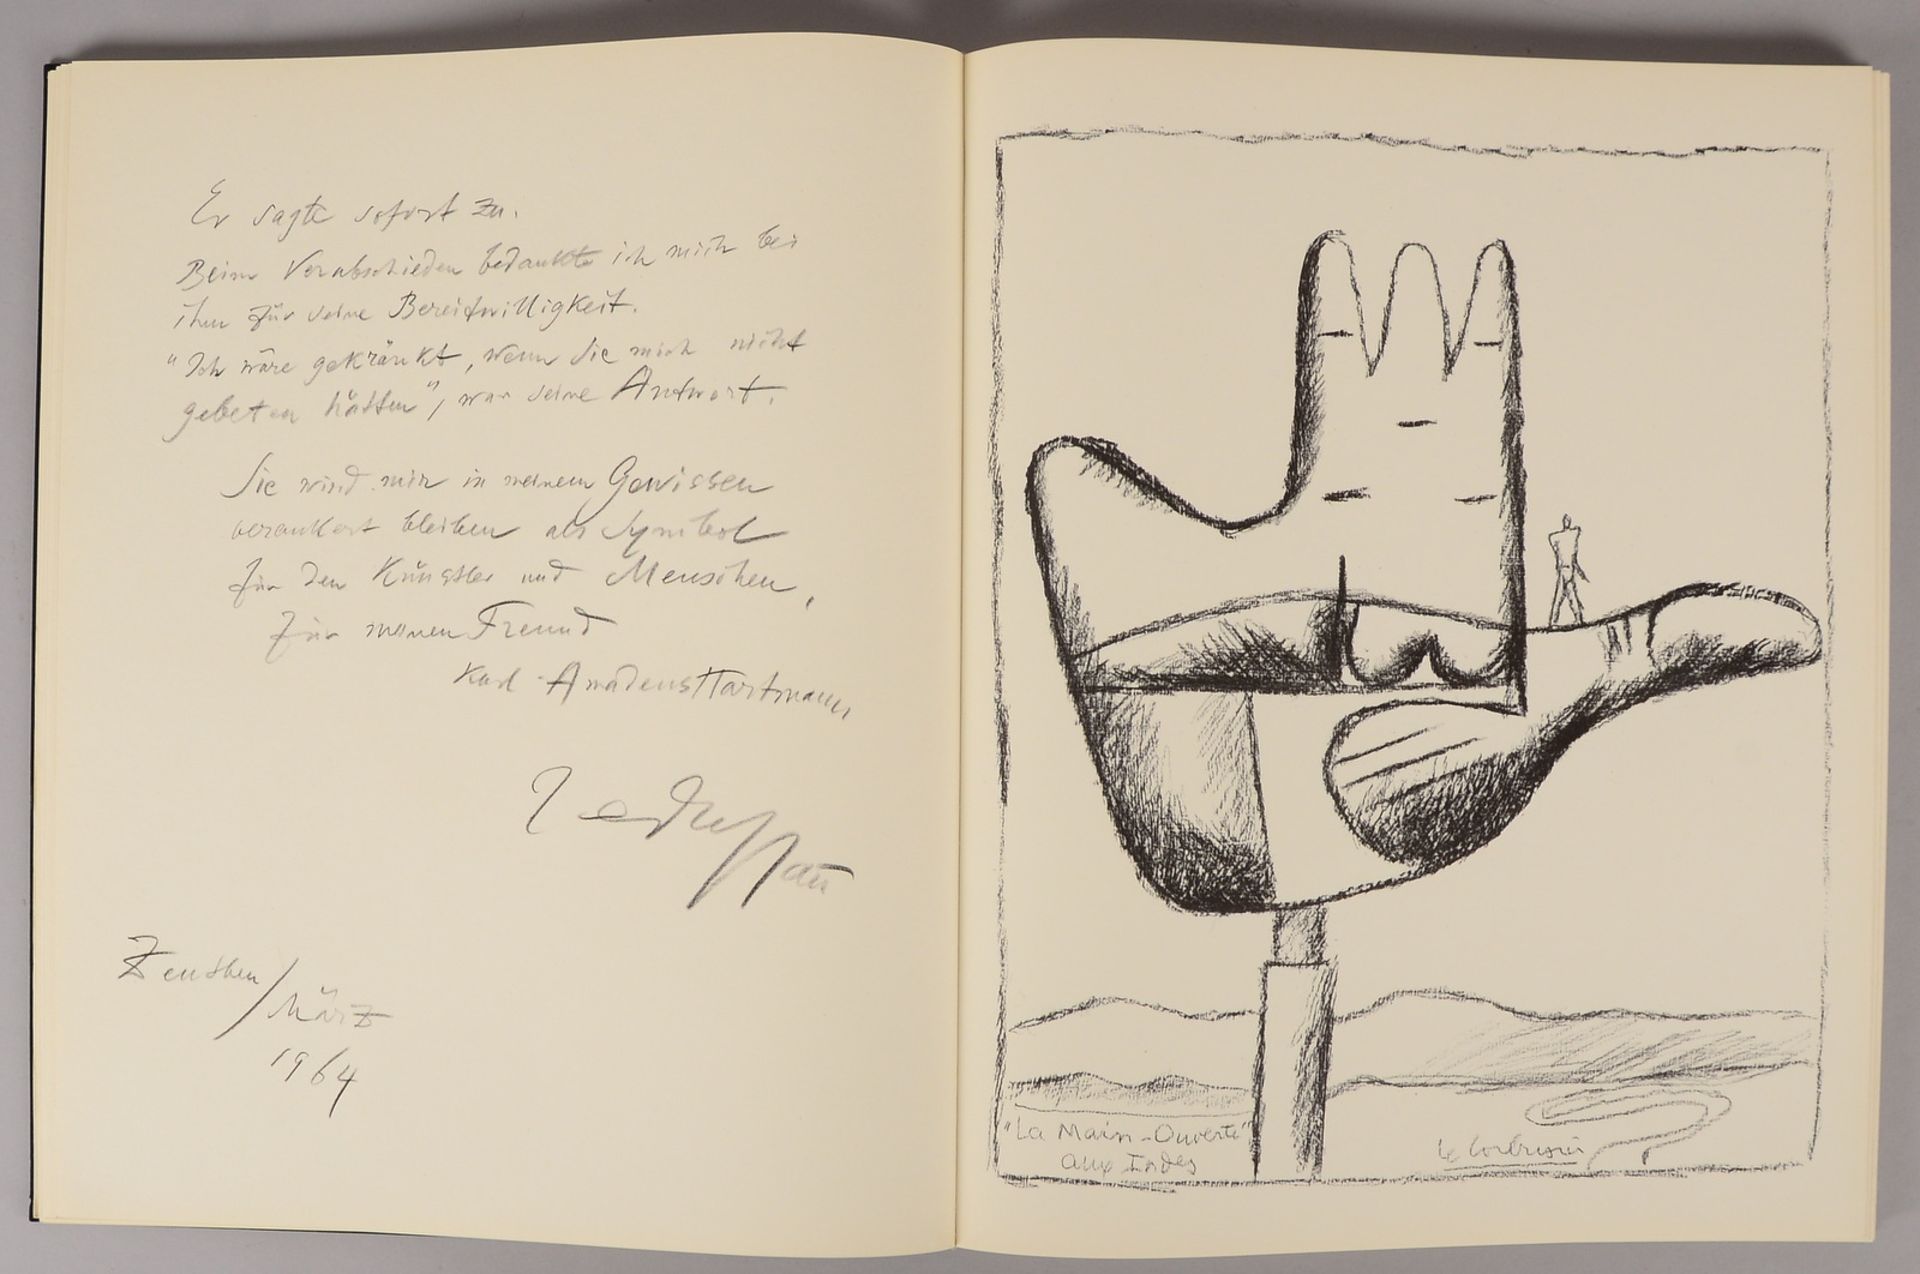 Er sagte sofort zu.
Beim Verabschieden bedankte ich mich bei
ihm für seine Bereitwilligkeit.
"Ich wäre gekränkt, wenn Sie mich nicht
gebeten hätten", war seine Antwort.
Sie wird mir in meinem Gewissen
verankert bleiben als Symbol
für den Künstler und Menschen,
für meinen Freund
Karl Amadeus Hartmann
Zeuthen/
März
1964
"La Main-Ouverte"
aux Indes
Le Corbusier